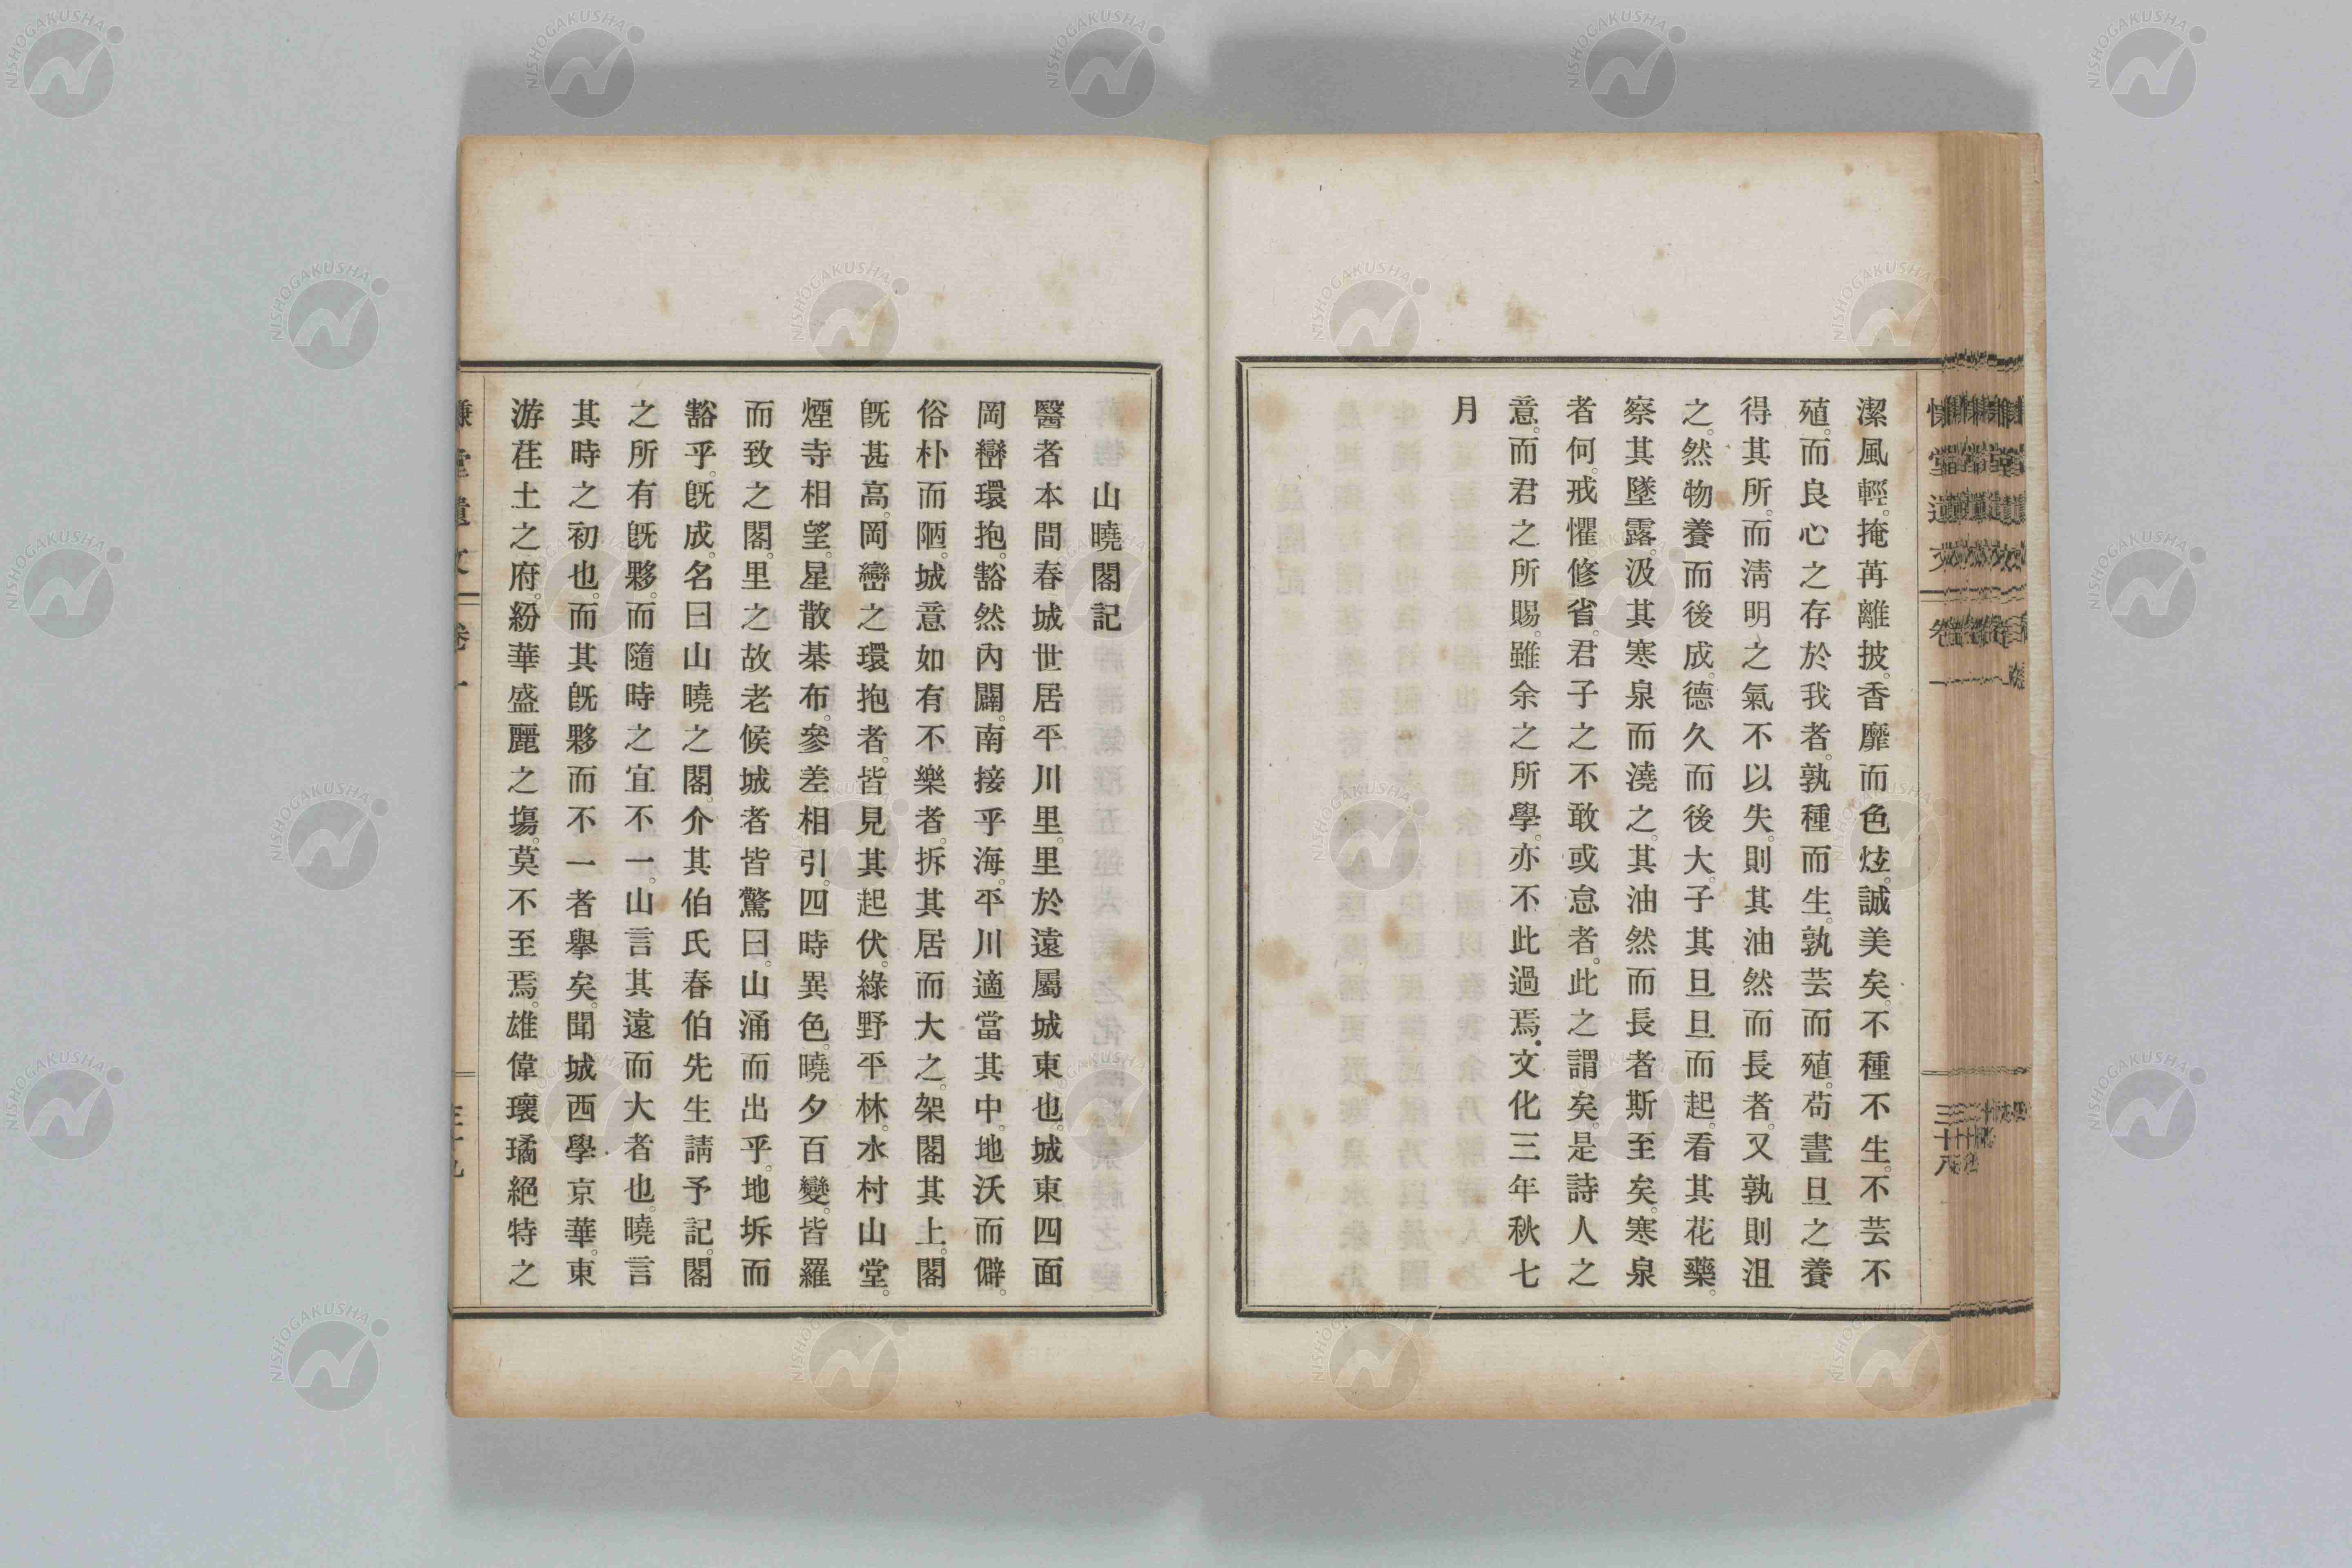 潔風輕。掩苒離披。香靡而色炫。誠美矣。不種不生。不芸不
殖。而良心之存於我者。孰種而生。孰芸而殖。苟晝旦之養
得其所。而淸明之氣不以失。則其油然而長者。又孰則沮
之。然物養而後成。德久而後大。子其旦旦而起。看其花藥。
察其墜露。汲其寒泉而澆之。其油然而長者斯至矣。寒泉
者何。戒懼修省。君子之不敢或怠者。此之謂矣。是詩人之
意。而君之所賜。雖余之所學。亦不此過焉。文化三年秋七
月
三十八
山曉閣記
醫者本間春城世居平川里。里於遠屬城東也。城東四面
岡巒環抱。豁然內闢。南接乎海。平川適當其中。地沃而僻。
俗朴而陋。城意如有不樂者。拆其居而大之。架閣其上。閣
旣甚高。岡巒之環抱者。皆見其起伏。綠野平林。水村山堂。
煙寺相望。星散棊布。參差相引。四時異色。曉夕百變。皆羅
而致之閣。里之故老候城者皆驚曰。山涌而出乎。地坼而
豁乎。旣成。名曰山曉之閣。介其伯氏春伯先生請予記。閣
之所有旣夥。而隨時之宜不一。山言其遠而大者也。曉言
其時之初也。而其旣夥而不一者擧矣。聞城西學京華。東
游荏土之府。紛華盛麗之塲。莫不至焉。雄偉瓌璚絕特之
NISHOGAKUSHA